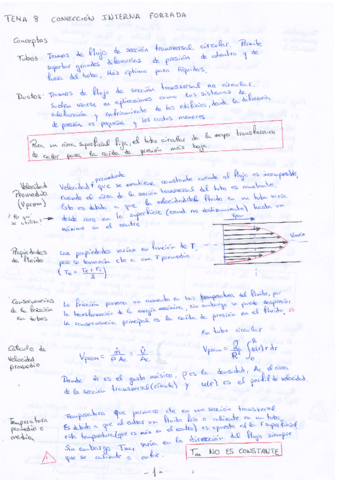 TEMA 8 CONVECCIÓN INTERNA FORZADA
Conceptos
Tubos: Tramos de flujo de sección transversal circular. Permite
soportar grandes diferencias de presión de adentro y de
fuera del tubo. Más óptimo para líquidos.
Ductos: Tramos de flujo de sección transversal no circular.
Suelen usarse en aplicaciones como los sistemas de
calefacción y enfriamiento de los edificios, donde la diferencia
de presión es pequeña y los costes menores.
Para un área superficial fija, el tubo circular da la mayor transferencia
de calor para la caída de presión más baja.
Velocidad
Promedio
(Vprom)
Velocidad promedio que se mantiene constante cuando el flujo es incompresible,
cuando el área de la sección transversal del tubo es constante.
Esto es debido a que la velocidad del fluido en un tubo varía
desde cero en la superficie (cond no deslizamiento) hasta un
máximo en el centro
Propiedades
de Fluido
Las propiedades varían en función de T,
pero se
T promedio
Conservación
de la fricción
en tubos
La fricción provoca un aumento en la temperatura del fluido, por
la transformación de la energía mecánica, sin embargo se puede despreciar,
la consecuencia principal es la caída de presión en el fluido.
Cálculo de
velocidad
promedio
en tubo circular
Vprom = ṁ / ρ Ac = V̇ / Ac
Vprom = 2/R² ∫ u(r) r dr
Donde ṁ es el gasto másico, ρ es la densidad, Ac el área
de la sección transversal (círculo) y u(r) es el perfil de velocidad
Temperatura
promedio o
media
Temperatura que permanece cte en una sección transversal
Es debido a que al entrar un fluido frío o caliente en un tubo
esta temperatura
Sin embargo Tm varía en la dirección del flujo siempre
que se caliente o enfríe.
Tm NO ES CONSTANTE
-1-